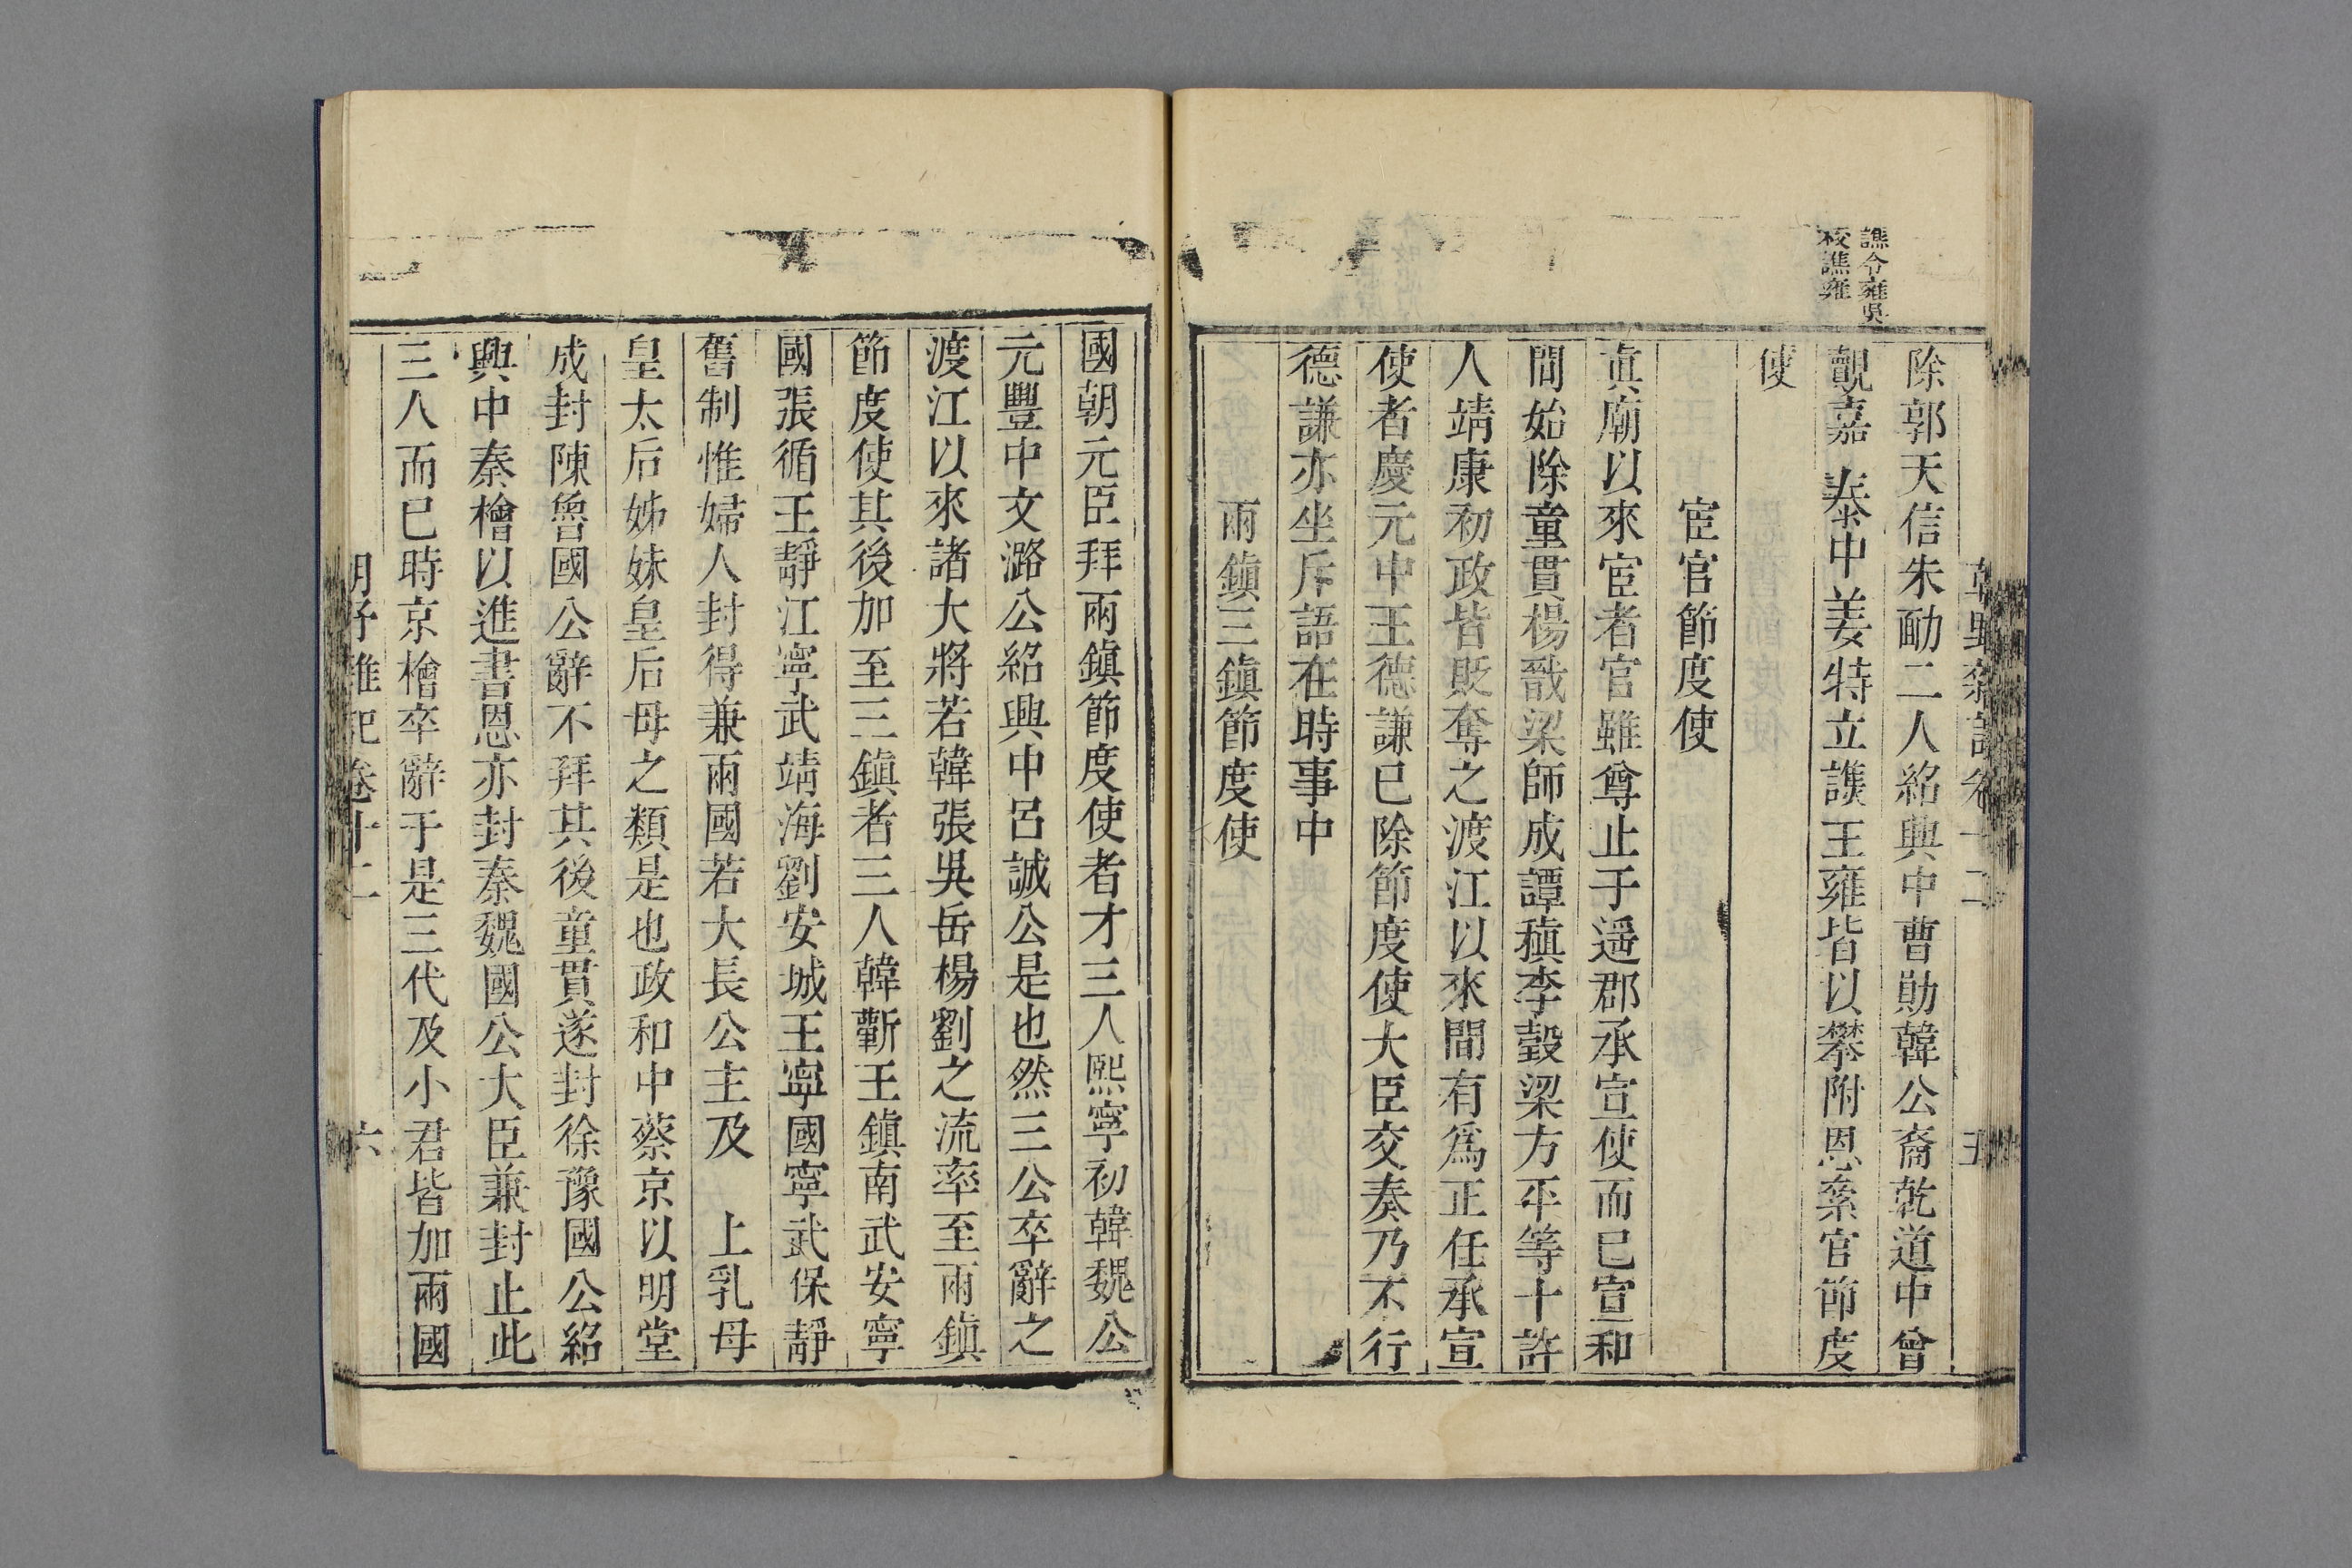 譙令雍吳
校譙雍
除郭天信朱勔二人紹興中曹勛韓公裔乾道中曾
覿嘉泰中姜特立譙王雍皆以攀附恩累官節度
使
宦官節度使
眞廟以來宦者官雖尊止于遥郡承宣使而已宣和
間始除童貫楊戩梁師成譚稹李彀梁方平等十許
人靖康初政皆貶奪之渡江以來間有爲正任承宣
使者慶元中王德謙已除節度使大臣交奏乃不行
德謙亦坐斥語在時事中
兩鎭三鎭節度使
國朝元臣拜兩鎭節度使者才三人熙寧初韓魏公
元豐中文潞公紹興中呂誠公是也然三公卒辭之
渡江以來諸大將若韓張吳岳楊劉之流率至兩鎭
節度使其後加至三鎭者三人韓蘄王鎭南武安寧
國張循王靜江寧武靖海劉安城王寧國寧武保靜
舊制惟婦人封得兼兩國若大長公主及 上乳母
皇太后姊妹皇后母之類是也政和中蔡京以明堂
成封陳魯國公辭不拜其後童貫遂封徐豫國公紹
興中秦檜以進書恩亦封秦魏國公大臣兼封止此
三人而已時京檜卒辭于是三代及小君皆加兩國
卷十二
六